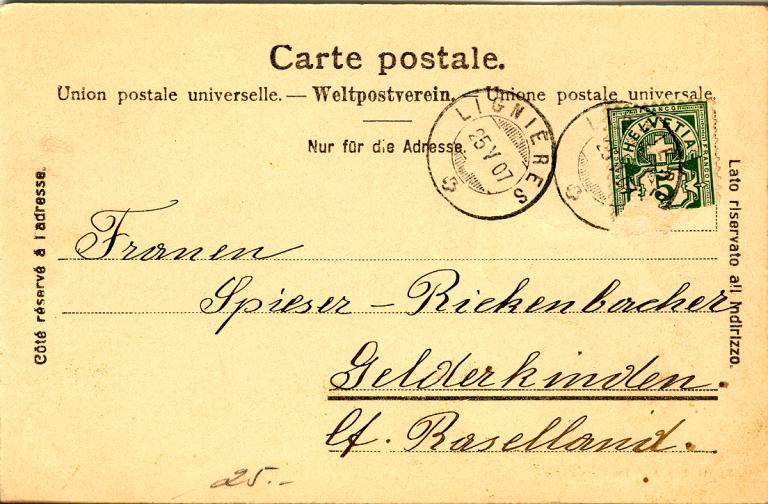 Carte postale.
Union postale universelle. — Weltpostverein. — Unione postale universale.
Nur für die Adresse.
Côté réservé à l'adresse.
Lato riservato all' indirizzo.
LIGNIÈRES
25 V 07
HELVETIA
FRANCO
5
Frauen
Spieser - Rickenbacher
Gelderkinden.
Ct. Baselland.
25.-